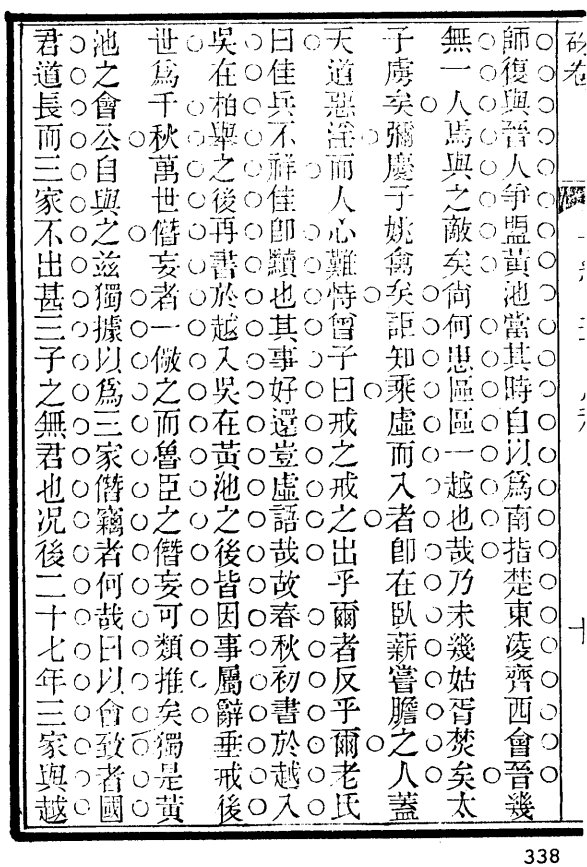 師復與晉人爭盟黃池當其時自以爲南指楚東凌齊西會晉幾
無一人焉與之敵矣尙何患區區一越也哉乃未幾姑胥焚矣太
子虜矣彌慶子姚禽矣詎知乘虛而入者卽在臥薪嘗膽之人蓋
天道惡淫而人心難恃曾子曰戒之戒之出乎爾者反乎爾老氏
曰佳兵不祥佳卽黷也其事好還豈虛語哉故春秋初書於越入
吳在柏舉之後再書於越入吳在黃池之後皆因事屬辭垂戒後
世爲千秋萬世僭妄者一儆之而魯臣之僭妄可類推矣獨是黃
池之會公自與之茲獨據以爲三家僭竊者何哉曰以會致者國
君道長而三家不出甚三子之無君也况後二十七年三家與越
338